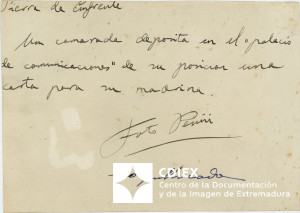 Sierra de Enfrente
Un camarada deposita en el "palacio
de comunicaciones" de su posicion una
carta para su madrina.
Foto
CDIEX
Centro de la Documentación
y de la Imagen de Extremadura